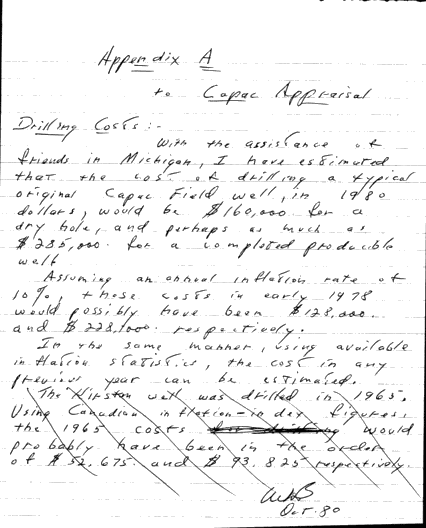 Appendix A
to Capac Appraisal
Drilling Costs:-
With the assistance of
friends in Michigan, I have estimated
that the cost of drilling a typical
original Capac Field well, in 1980
dollars, would be $160,000 for a
dry hole, and perhaps as much as
$285,000. for a completed producible
well.
Assuming an annual inflation rate of
10%, those costs in early 1978
would possibly have been $128,000.
and $228,000. respectively.
In the same manner, using available
inflation statistics, the cost in any
previous year can be estimated.
The well was drilled in 1965.
Using Canadian inflation-index figures,
the 1965 costs would
probably have been in the order
of $52,675. and $93,825 respectively.
Oct. 80